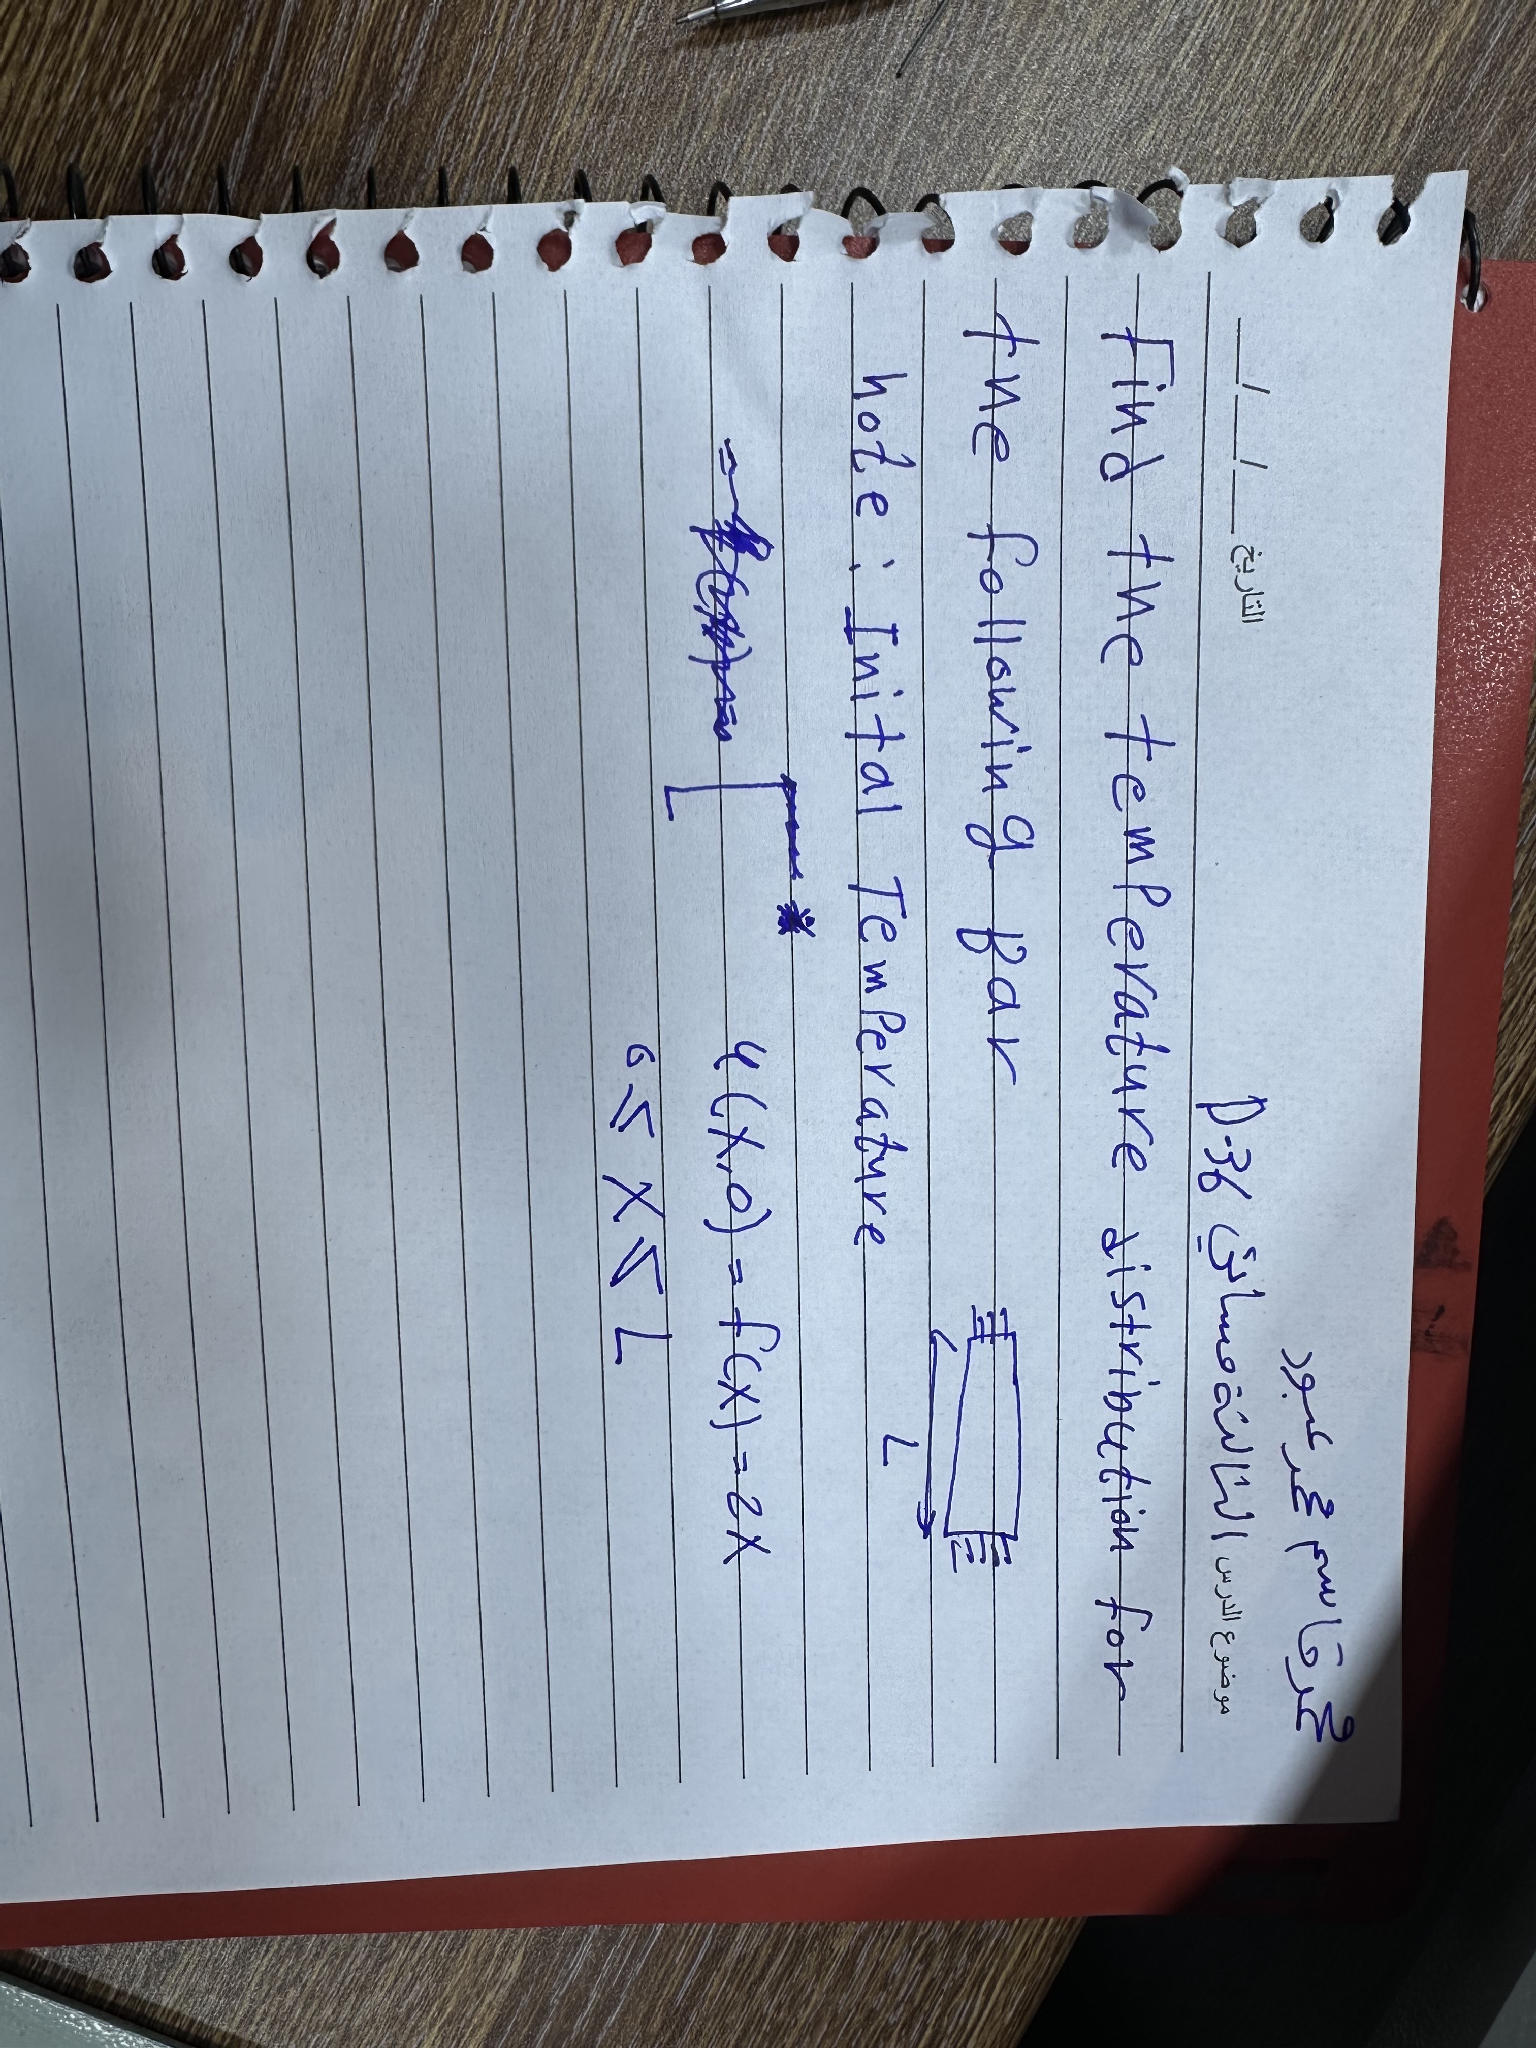 محمد قاسم محمد عبود
موضوع الدرس الثالثة مسائي D-36
التاريخ __/__/__
Find the temperature distribution for
the following bar
L
note: Inital Temperature
u(x,0) = f(x) = 2x
0 ≤ x ≤ L